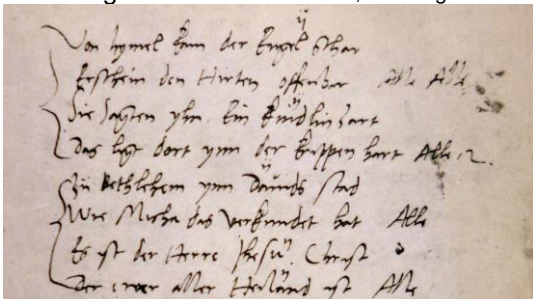 Von hymel kam der Engel schar
Erschein den Hirten offenbar Alle Alle
Sie sagten yhn. Ein kindlin zart
Das ligt dort ynn der krippen hart Alle
Zu Bethlehem ynn Dauids stad
Wie Micha das verkundet hat Alle
Es ist der Herre Jhesu Christ
Der ewer aller Heiland ist Alle